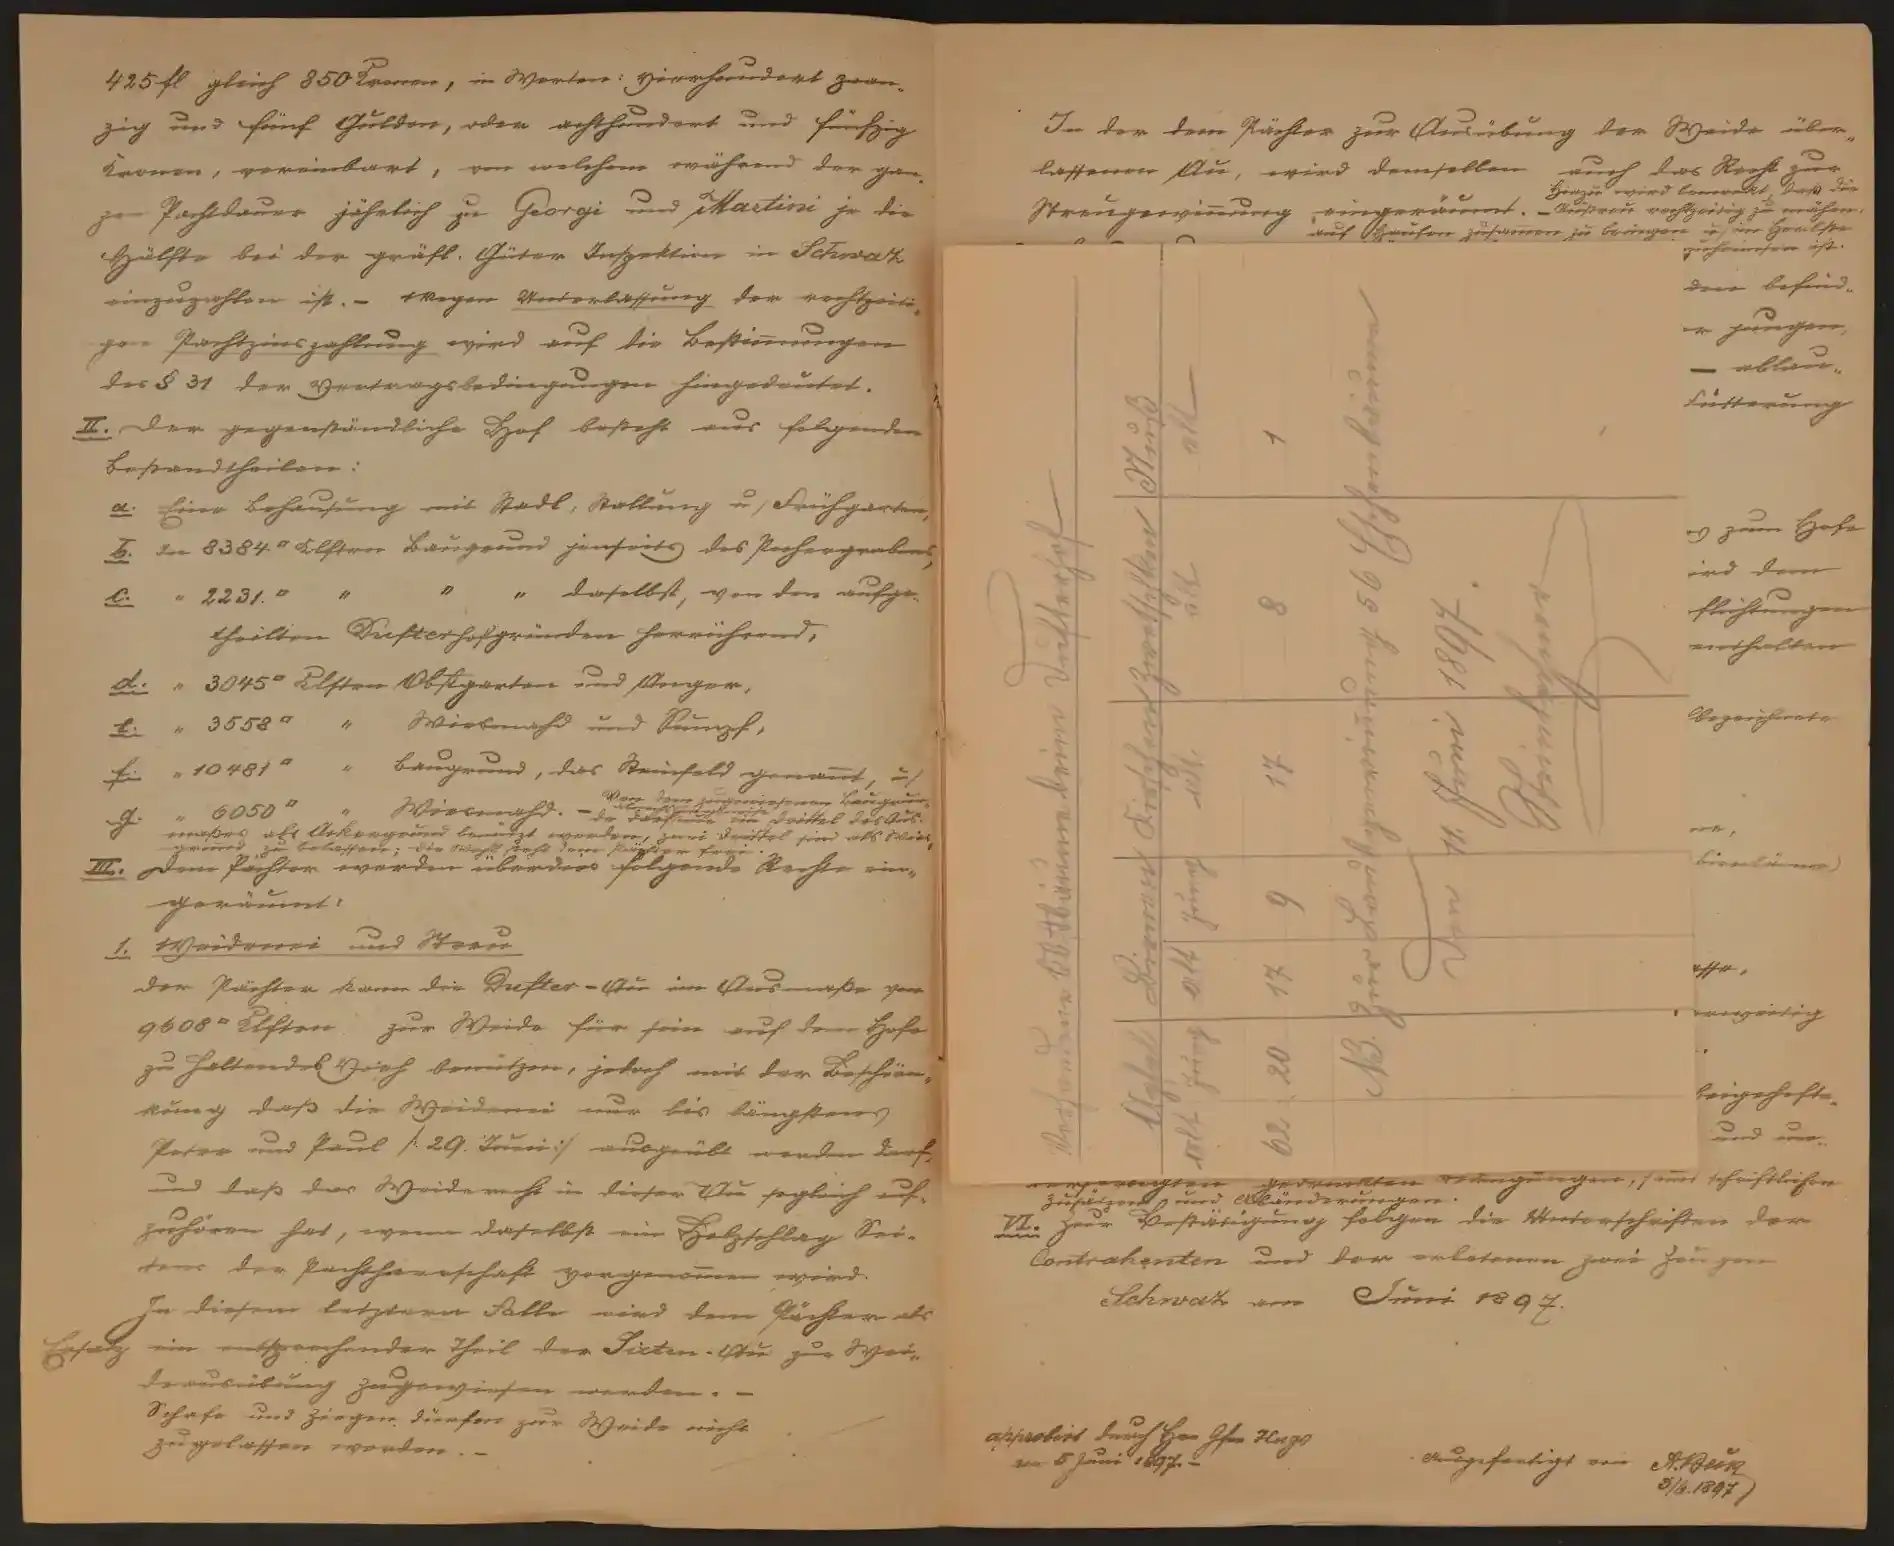 425 fl gleich 850 Kronen, in Worten: vierhundert zwan-
zig und fünf Gulden, oder achthundert und fünfzig
Kronen, vereinbart, von welchem während der gan-
zen Pachtdauer jährlich zu Georgi und Martini je die
Hälfte bei der gräfl. Güter Inspektion in Schwaz
einzuzahlen ist. – Wegen Unterlassung der rechtzeiti-
gen Pachtzinszahlung wird auf die Bestimungen
des § 31 der Vertragsbedingungen hingedeutet.
II. Der gegenständliche Hof besteht aus folgenden
Bestandtheilen:
a. Eine Behausung mit Stadl, Stallung u/ Frühgarten,
b. die 8384 □ Klftrn Baugrund jenseits des Pochergrabens,
c. " 2231 □ " " " daselbst, von den aufge-
theilten Dufterhofgründen herrührend,
d. " 3045 □ Klftrn Obstgarten und Anger,
e. " 3558 □ " Wiesmahd und Sumpf,
f. " 10481 □ " Baugrund, das Steinfeld genannt, u/
g. " 6050 □ " Wiesmahd. – Von dem zugewiesenen Baugrun-
de darf ein Drittel des Aus-
maßes als Ackergrund benützt werden, zwei Drittel sind als Wies-
grund zu belassen; die Wahl steht dem Pächter frei.
III. Dem Pächter werden überdies folgende Rechte ein-
geräumt:
1. Weidenei und Streu
Der Pächter kann die Dufter-Au im Ausmaße von
9608 □ Klftrn zur Weide für sein auf dem Hofe
zu haltendes Vieh benützen, jedoch mit der Beschrän-
kung daß die Weidenei nur bis längstens
Peter und Paul /: 29. Juni :/ ausgeübt werden darf,
und daß das Weiderecht in dieser Au sogleich auf-
zuhören hat, wenn daselbst ein Holzschlag Sei-
tens der Pachtherrschaft vorgenommen wird.
In diesem letztern Falle wird dem Pächter als
Ersatz ein entsprechender Theil der Au zur Wei-
deausübung zugewiesen werden. –
Schafe und Ziegen dürfen zur Weide nicht
zugelassen werden. –
In der dem Pächter zur Ausübung der Weide über-
lassenen Au, wird demselben auch das Recht zur
Streugewinnung eingeräumt. – Hiezu wird bemerkt, daß die
rechtzeitig zu mähen,
auf Haufen zusamen zu bringen u/ im Herbste
ist.
den befind-
r jungen,
– ablau-
Fütterung
zum Hofe
ird dem
flichtungen
enthalten
bezeichnete
erweitig
beigehefte-
und un-
gedruckten schriftlichen
Zusätzen und Abänderungen.
VI. Zur Bestätigung folgen die Unterschriften der
Contrahenten und der erbetenen zwei Zeugen
Schwaz am Juni 1897.
approbirt durch Hrn Gfen Hugo
am 5 Juni 1897. –
Ausgefertigt von A. Beck
5/6. 1897
Obstbäume beim Dufterhof
Äpfel Birnen Kirschen Zwetschken Nuß
alt jung alt jung alt. alt alt
62 20 17 9 17 8 1
den 14 Juni 1897.